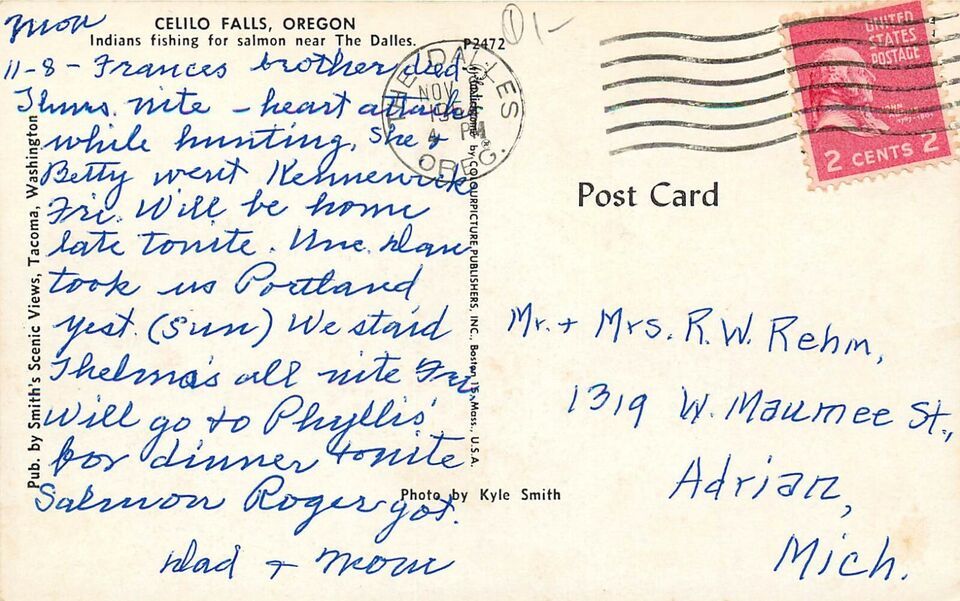 Mon
CELILO FALLS, OREGON
Indians fishing for salmon near The Dalles.
P2472
11-8 - Frances brother died
Thurs. nite - heart attack
while hunting. She +
Betty went Kennewick
Fri. Will be home
late tonite. Unc. Dan
took us Portland
yest. (Sun) We staid
Thelma's all nite Fri.
Will go to Phyllis'
for dinner tonite
Salmon Roger got.
Dad + Mom
Pub. by Smith's Scenic Views, Tacoma, Washington
by COLOURPICTURE PUBLISHERS, INC., Boston 15, Mass., U.S.A.
Photo by Kyle Smith
THE DALLES
NOV
4 PM
OREG.
UNITED
STATES
POSTAGE
2 CENTS 2
Post Card
Mr. + Mrs. R. W. Rehm,
1319 W. Maumee St.,
Adrian,
Mich.